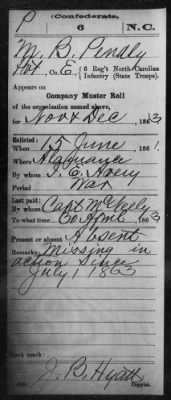 P
(Confederate.)
6 N.C.
M. B. Penaly
Pvt, Co. E, 6 Reg't North Carolina
Infantry (State Troops).
Appears on
Company Muster Roll
of the organization named above,
for Nov & Dec, 1863
Enlisted:
When 15 June, 1861.
Where Alamance
By whom I. E. Avery
Period War
Last paid:
By whom Capt McNeely
To what time 30 April, 1863
Present or absent Absent
Remarks: Missing in
action since
July 1 1863
Book mark:
J. B. Hyatt
Copyist.